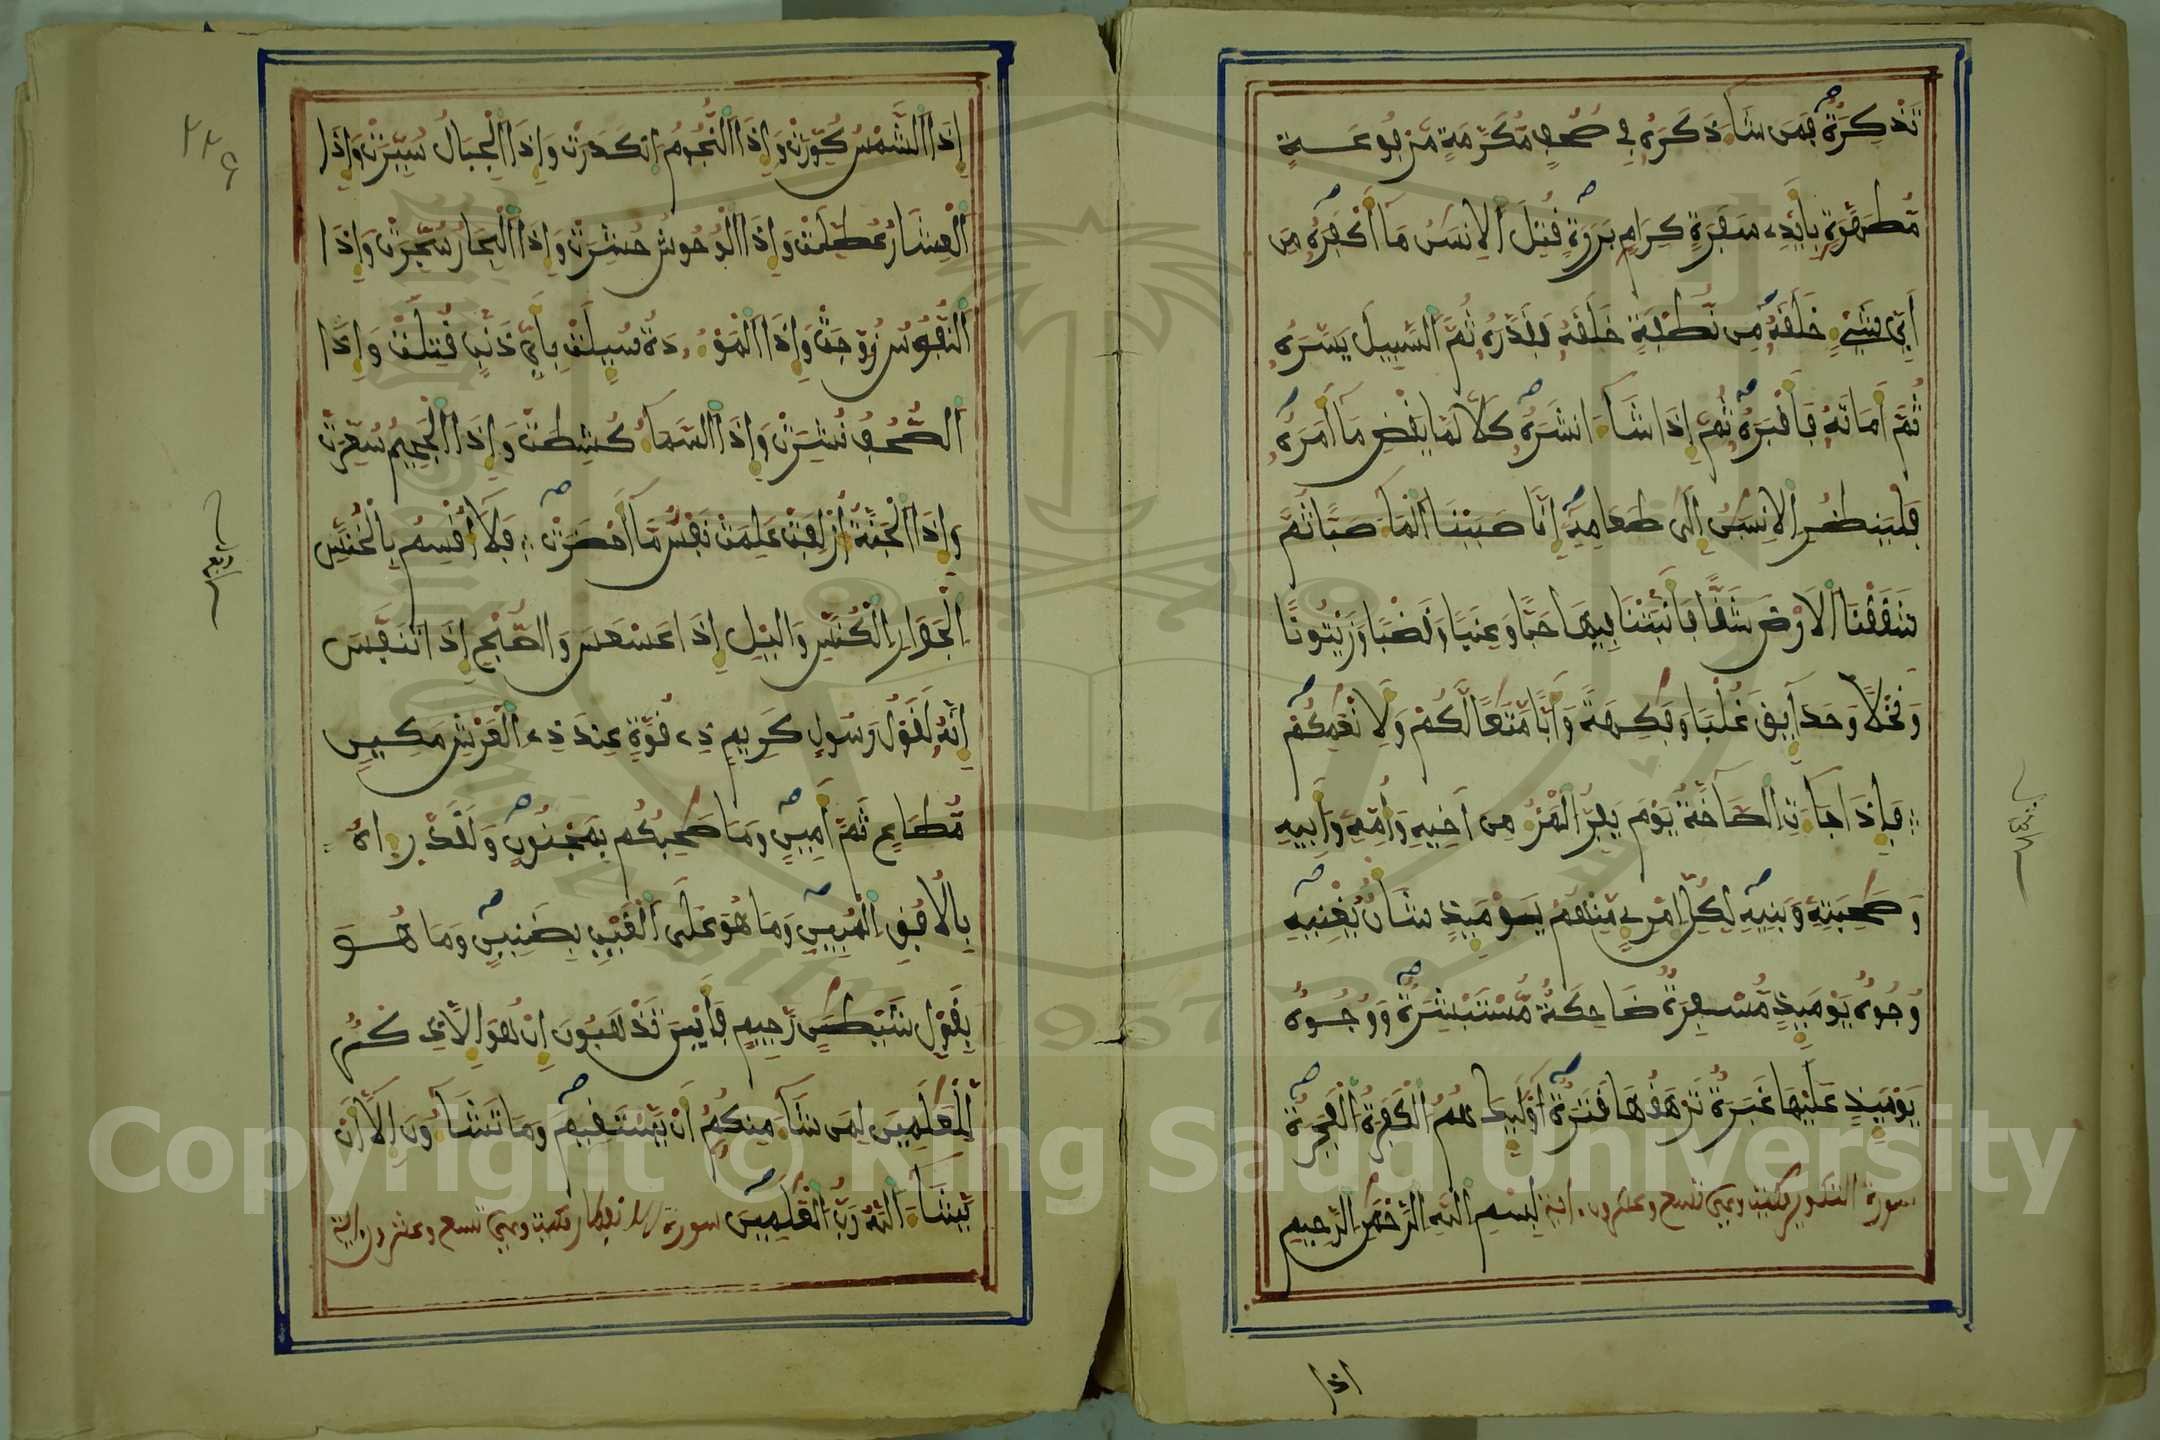 تَذْكِرَةٌ فَمَن شَآءَ ذَكَرَهُ فِے صُحُفٖ مُّكَرَّمَةٖ مَّرْفُوعَةٖ
مُّطَهَّرَةٖ بِأَيْدِے سَفَرَةٖ كِرَامٖ بَرَرَةٖ قُتِلَ اَ۬لِانسَٰنُ مَآ أَكْفَرَهُ مِنَ
اَيِّ شَےْءٍ خَلَقَهُ مِن نُّطْفَةٍ خَلَقَهُ فَقَدَّرَهُ ثُمَّ اَ۬لسَّبِيلَ يَسَّرَهُ
ثُمَّ أَمَاتَهُ فَأَقْبَرَهُ ثُمَّ إِذَا شَآءَ انشَرَهُ كَلَّا لَمَّا يَقْضِ مَآ أَمَرَهُ
فَلْيَنظُرِ اِ۬لِانسَٰنُ إِلَىٰ طَعَامِهِ إِنَّا صَبَبْنَا اَ۬لْمَآءَ صَبّاٗ ثُمَّ
شَقَقْنَا اَ۬لَارْضَ شَقّاٗ فَأَنۢبَتْنَا فِيهَا حَبّاٗ وَعِنَباٗ وَقَضْباٗ وَزَيْتُوناٗ
وَنَخْلاٗ وَحَدَآئِقَ غُلْباٗ وَفَٰكِهَةٗ وَأَبّاٗ مَّتَٰعاٗ لَّكُمْ وَلِأَنْعَٰمِكُمْ
فَإِذَا جَآءَتِ اِ۬لصَّآخَّةُ يَوْمَ يَفِرُّ اُ۬لْمَرْءُ مِنَ اَخِيهِ وَأُمِّهِ وَأَبِيهِ
وَصَٰحِبَتِهِ وَبَنِيهِ لِكُلِّ اِ۪مْرِےٕٖ مِّنْهُمْ يَوْمَئِذٖ شَأْنٌ يُغْنِيهِ
وُجُوهٌ يَوْمَئِذٖ مُّسْفِرَةٌ ضَاحِكَةٌ مُّسْتَبْشِرَةٌ وَوُجُوهٌ
يَوْمَئِذٍ عَلَيْهَا غَبَرَةٌ تَرْهَقُهَا قَتَرَةٌ اُوْلَٰٓئِكَ هُمُ اُ۬لْكَفَرَةُ اُ۬لْفَجَرَةُ
سورة التكوير مكية وهي تسع وعشرون اية بِسْمِ اِ۬للَّهِ اِ۬لرَّحْمَٰنِ اِ۬لرَّحِيمِ
اذا
إِذَا اَ۬لشَّمْسُ كُوِّرَتْ وَإِذَا اَ۬لنُّجُومُ اُ۪نكَدَرَتْ وَإِذَا اَ۬لْجِبَالُ سُيِّرَتْ وَإِذَا
اَ۬لْعِشَارُ عُطِّلَتْ وَإِذَا اَ۬لْوُحُوشُ حُشِرَتْ وَإِذَا اَ۬لْبِحَارُ سُجِّرَتْ وَإِذَا
اَ۬لنُّفُوسُ زُوِّجَتْ وَإِذَا اَ۬لْمَوْءُۥدَةُ سُئِلَتْ بِأَيِّ ذَنۢبٖ قُتِلَتْ وَإِذَا
اَ۬لصُّحُفُ نُشِرَتْ وَإِذَا اَ۬لسَّمَآءُ كُشِطَتْ وَإِذَا اَ۬لْجَحِيمُ سُعِّرَتْ
وَإِذَا اَ۬لْجَنَّةُ أُزْلِفَتْ عَلِمَتْ نَفْسٞ مَّآ أَحْضَرَتْ فَلَآ أُقْسِمُ بِالْخُنَّسِ
اِ۬لْجَوَارِ اِ۬لْكُنَّسِ وَاليْلِ إِذَا عَسْعَسَ وَالصُّبْحِ إِذَا تَنَفَّسَ
إِنَّهُ لَقَوْلُ رَسُولٖ كَرِيمٖ ذِے قُوَّةٍ عِندَ ذِے اِ۬لْعَرْشِ مَكِينٖ
مُّطَاعٖ ثَمَّ أَمِينٖ وَمَا صَٰحِبُكُم بِمَجْنُونٖ وَلَقَدْ رَءِاهُ
بِالُافُقِ اِ۬لْمُبِينِ وَمَا هُوَ عَلَى اَ۬لْغَيْبِ بِضَنِينٖ وَمَا هُوَ
بِقَوْلِ شَيْطَٰنٖ رَّجِيمٖ فَأَيْنَ تَذْهَبُونَ إِنْ هُوَ إِلَّا ذِكْرٞ
لِّلْعَٰلَمِينَ لِمَن شَآءَ مِنكُمُ أَنْ يَّسْتَقِيمَ وَمَا تَشَآءُونَ إِلَّآ أَنْ
يَّشَآءَ اَ۬للَّهُ رَبُّ اُ۬لْعَٰلَمِينَ سورة الانفطار مكية وهي تسع وعشرون اية
Copyright © King Saud University
1957